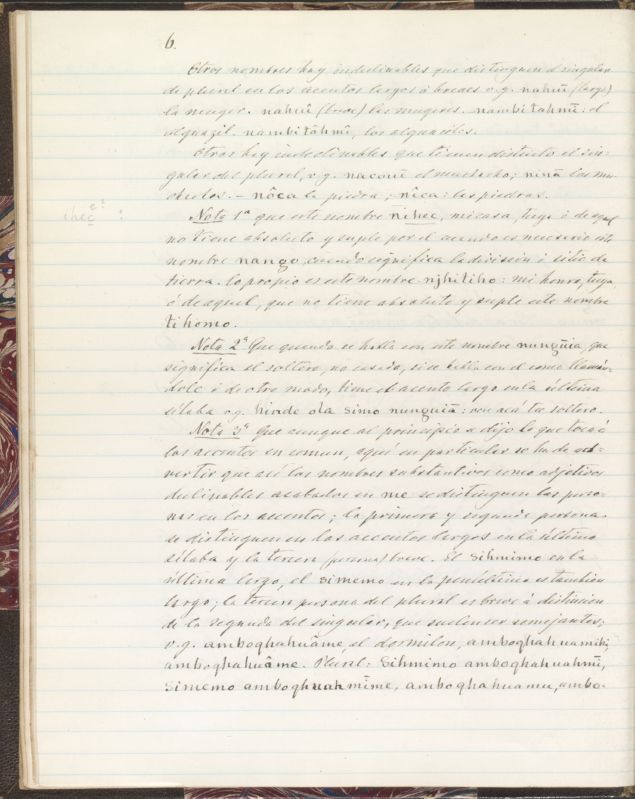 6.
Otros nombres hay indeclinables que distinguen el singular
de plural en los acentos largos ó breves v.g. nahuī (largo)
la muger. nahuî (breve) las mugeres. nambitahmī: el
alguazil. nambitāhmî, los alguaciles.
Otros hay indeclinables que tienen distinto el sin-
gular del plural, v.g. nacouī el muchacho; ninā los mu-
chachos. – nôca la piedra; nîca: las piedras.
Nota 1ª que este nombre nihec, mi casa, tuya ó de aquel
no tiene absoluto y suple por él cuando es necesario este
nombre nango, cuando significa la division ó sitio de
tierra. lo propio es este nombre njhitiho: mi honra, tuya,
ó de aquel, que no tiene absoluto y suple este nombre
tihomo.
Nota 2ª Que quando se habla con este nombre nunguia, que
significa el soltero, no casado, si se habla con él como llamán-
dole ó de otro modo, tiene el acento largo en la última
sílaba v.g. hinde ola simo nunguiā: ven acá tu soltero.
Nota 3ª Que aunque al principio se dijo lo que tocaá
los acentos en comun, aquí en particular se ha de ad-
vertir que así los nombres substantivos como adjetivos
declinables acabados en me se distinguen las perso-
nas en los acentos; la primera y segunda persona
se distinguen en los acentos largos en la última
sílaba y la tercera (persona) breve. El sihmimo en la
última largo, el simemo en la penúltima es tambien
largo; la tercera persona del plural es breve á distincion
de la segunda del singular, que suelen ser semejantes;
v.g. amboghahuâme, el dormilon, amboghahuamihi,
amboghahuâme. Plural: Sihmimo amboghahuahmī,
simemo amboghuahmīme, amboghahuamu, ambo-